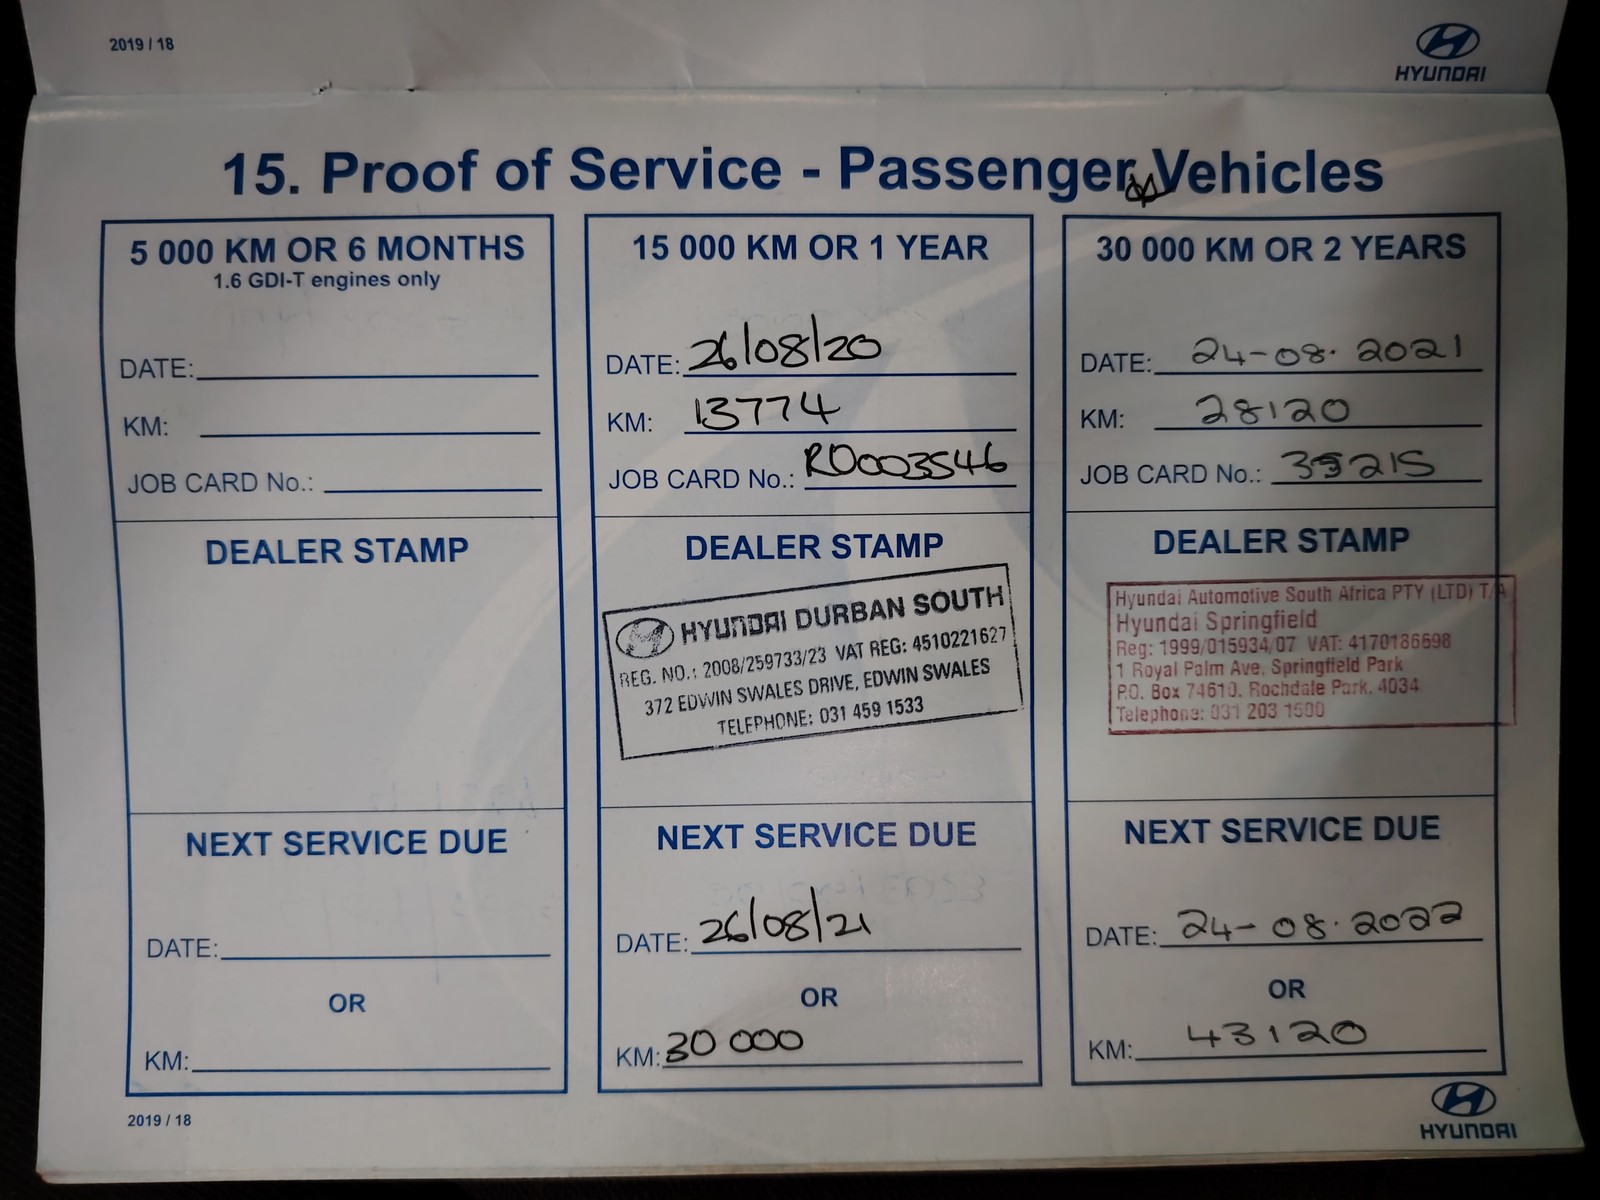 2019 / 18
HYUNDAI
15. Proof of Service - Passenger Vehicles
5 000 KM OR 6 MONTHS
1.6 GDI-T engines only
DATE:
KM:
JOB CARD No.:
DEALER STAMP
NEXT SERVICE DUE
DATE:
OR
KM:
15 000 KM OR 1 YEAR
DATE: 26/08/20
KM: 13774
JOB CARD No.: RO003546
DEALER STAMP
HYUNDAI DURBAN SOUTH
REG. NO.: 2008/259733/23 VAT REG: 4510221627
372 EDWIN SWALES DRIVE, EDWIN SWALES
TELEPHONE: 031 459 1533
NEXT SERVICE DUE
DATE: 26/08/21
OR
KM: 30 000
30 000 KM OR 2 YEARS
DATE: 24-08.2021
KM: 28120
JOB CARD No.:
DEALER STAMP
Hyundai Automotive South Africa PTY (LTD) T/A
Hyundai Springfield
Reg: 1999/015934/07 VAT: 4170186698
1 Royal Palm Ave, Springfield Park
P.O. Box 74610, Rochdale Park, 4034
Telephone: 031 203 1500
NEXT SERVICE DUE
DATE: 24-08.2022
OR
KM: 43120
2019 / 18
HYUNDAI